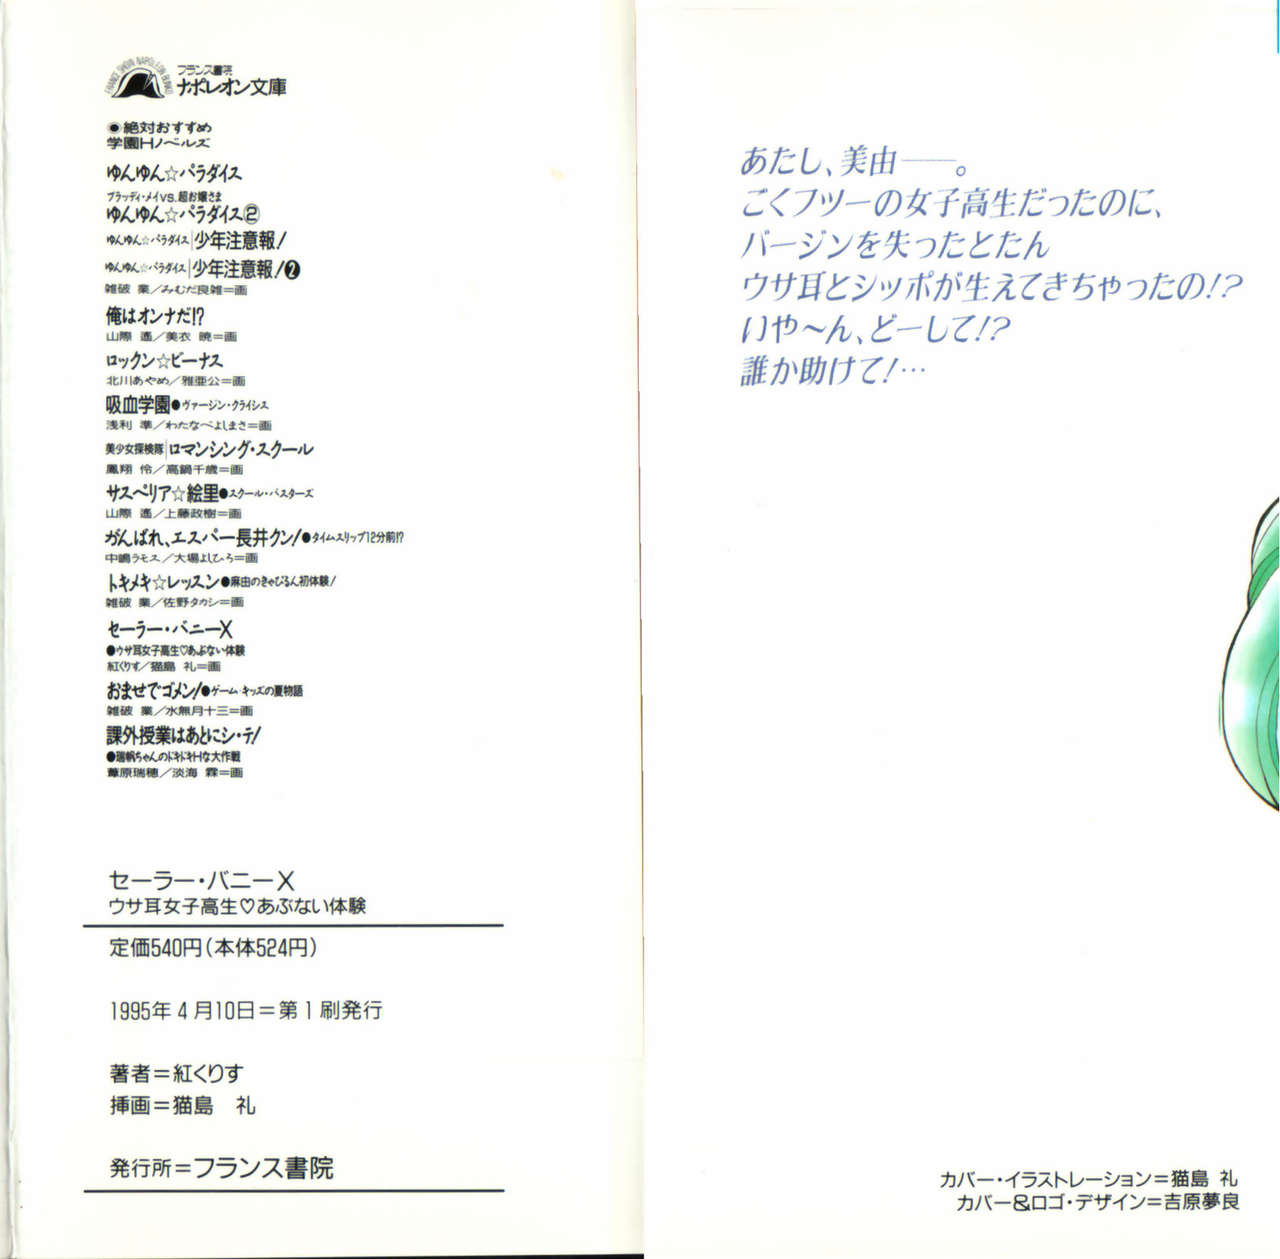 FRANCE SHOIN NAPOLEON BUNKO
フランス書院
ナポレオン文庫
◉絶対おすすめ
学園Hノベルズ
ゆんゆん☆パラダイス
ブラッディ・メイVS.超お嬢さま
ゆんゆん☆パラダイス②
ゆんゆん☆パラダイス|少年注意報!
ゆんゆん☆パラダイス|少年注意報!❷
雑破 業/みむだ良雑=画
俺はオンナだ!?
山際 遙/美衣 暁=画
ロックン☆ビーナス
北川あやめ/雅亜公=画
吸血学園●ヴァージン・クライシス
浅利 準/わたなべよしまさ=画
美少女探検隊|ロマンシング・スクール
鳳翔 伶/高鍋千歳=画
サスペリア☆絵里●スクール・バスターズ
山際 遙/上藤政樹=画
がんばれ、エスパー長井クン!●タイムスリップ12分前!?
中嶋ラモス/大場よしひろ=画
トキメキ☆レッスン●麻由のきゃぴるん初体験!
雑破 業/佐野タカシ=画
セーラー・バニーX
●ウサ耳女子高生♡あぶない体験
紅くりす/猫島 礼=画
おませでゴメン!●ゲーム・キッズの夏物語
雑破 業/水無月十三=画
課外授業はあとにシ・テ!
●瑞帆ちゃんのドキドキHな大作戦
葦原瑞穂/淡海 霖=画
セーラー・バニーX
ウサ耳女子高生♡あぶない体験
定価540円(本体524円)
1995年4月10日=第1刷発行
著者=紅くりす
挿画=猫島 礼
発行所=フランス書院
あたし、美由——。
ごくフツーの女子高生だったのに、
バージンを失ったとたん
ウサ耳とシッポが生えてきちゃったの!?
いや〜ん、どーして!?
誰か助けて!…
カバー・イラストレーション=猫島 礼
カバー&ロゴ・デザイン=吉原夢良